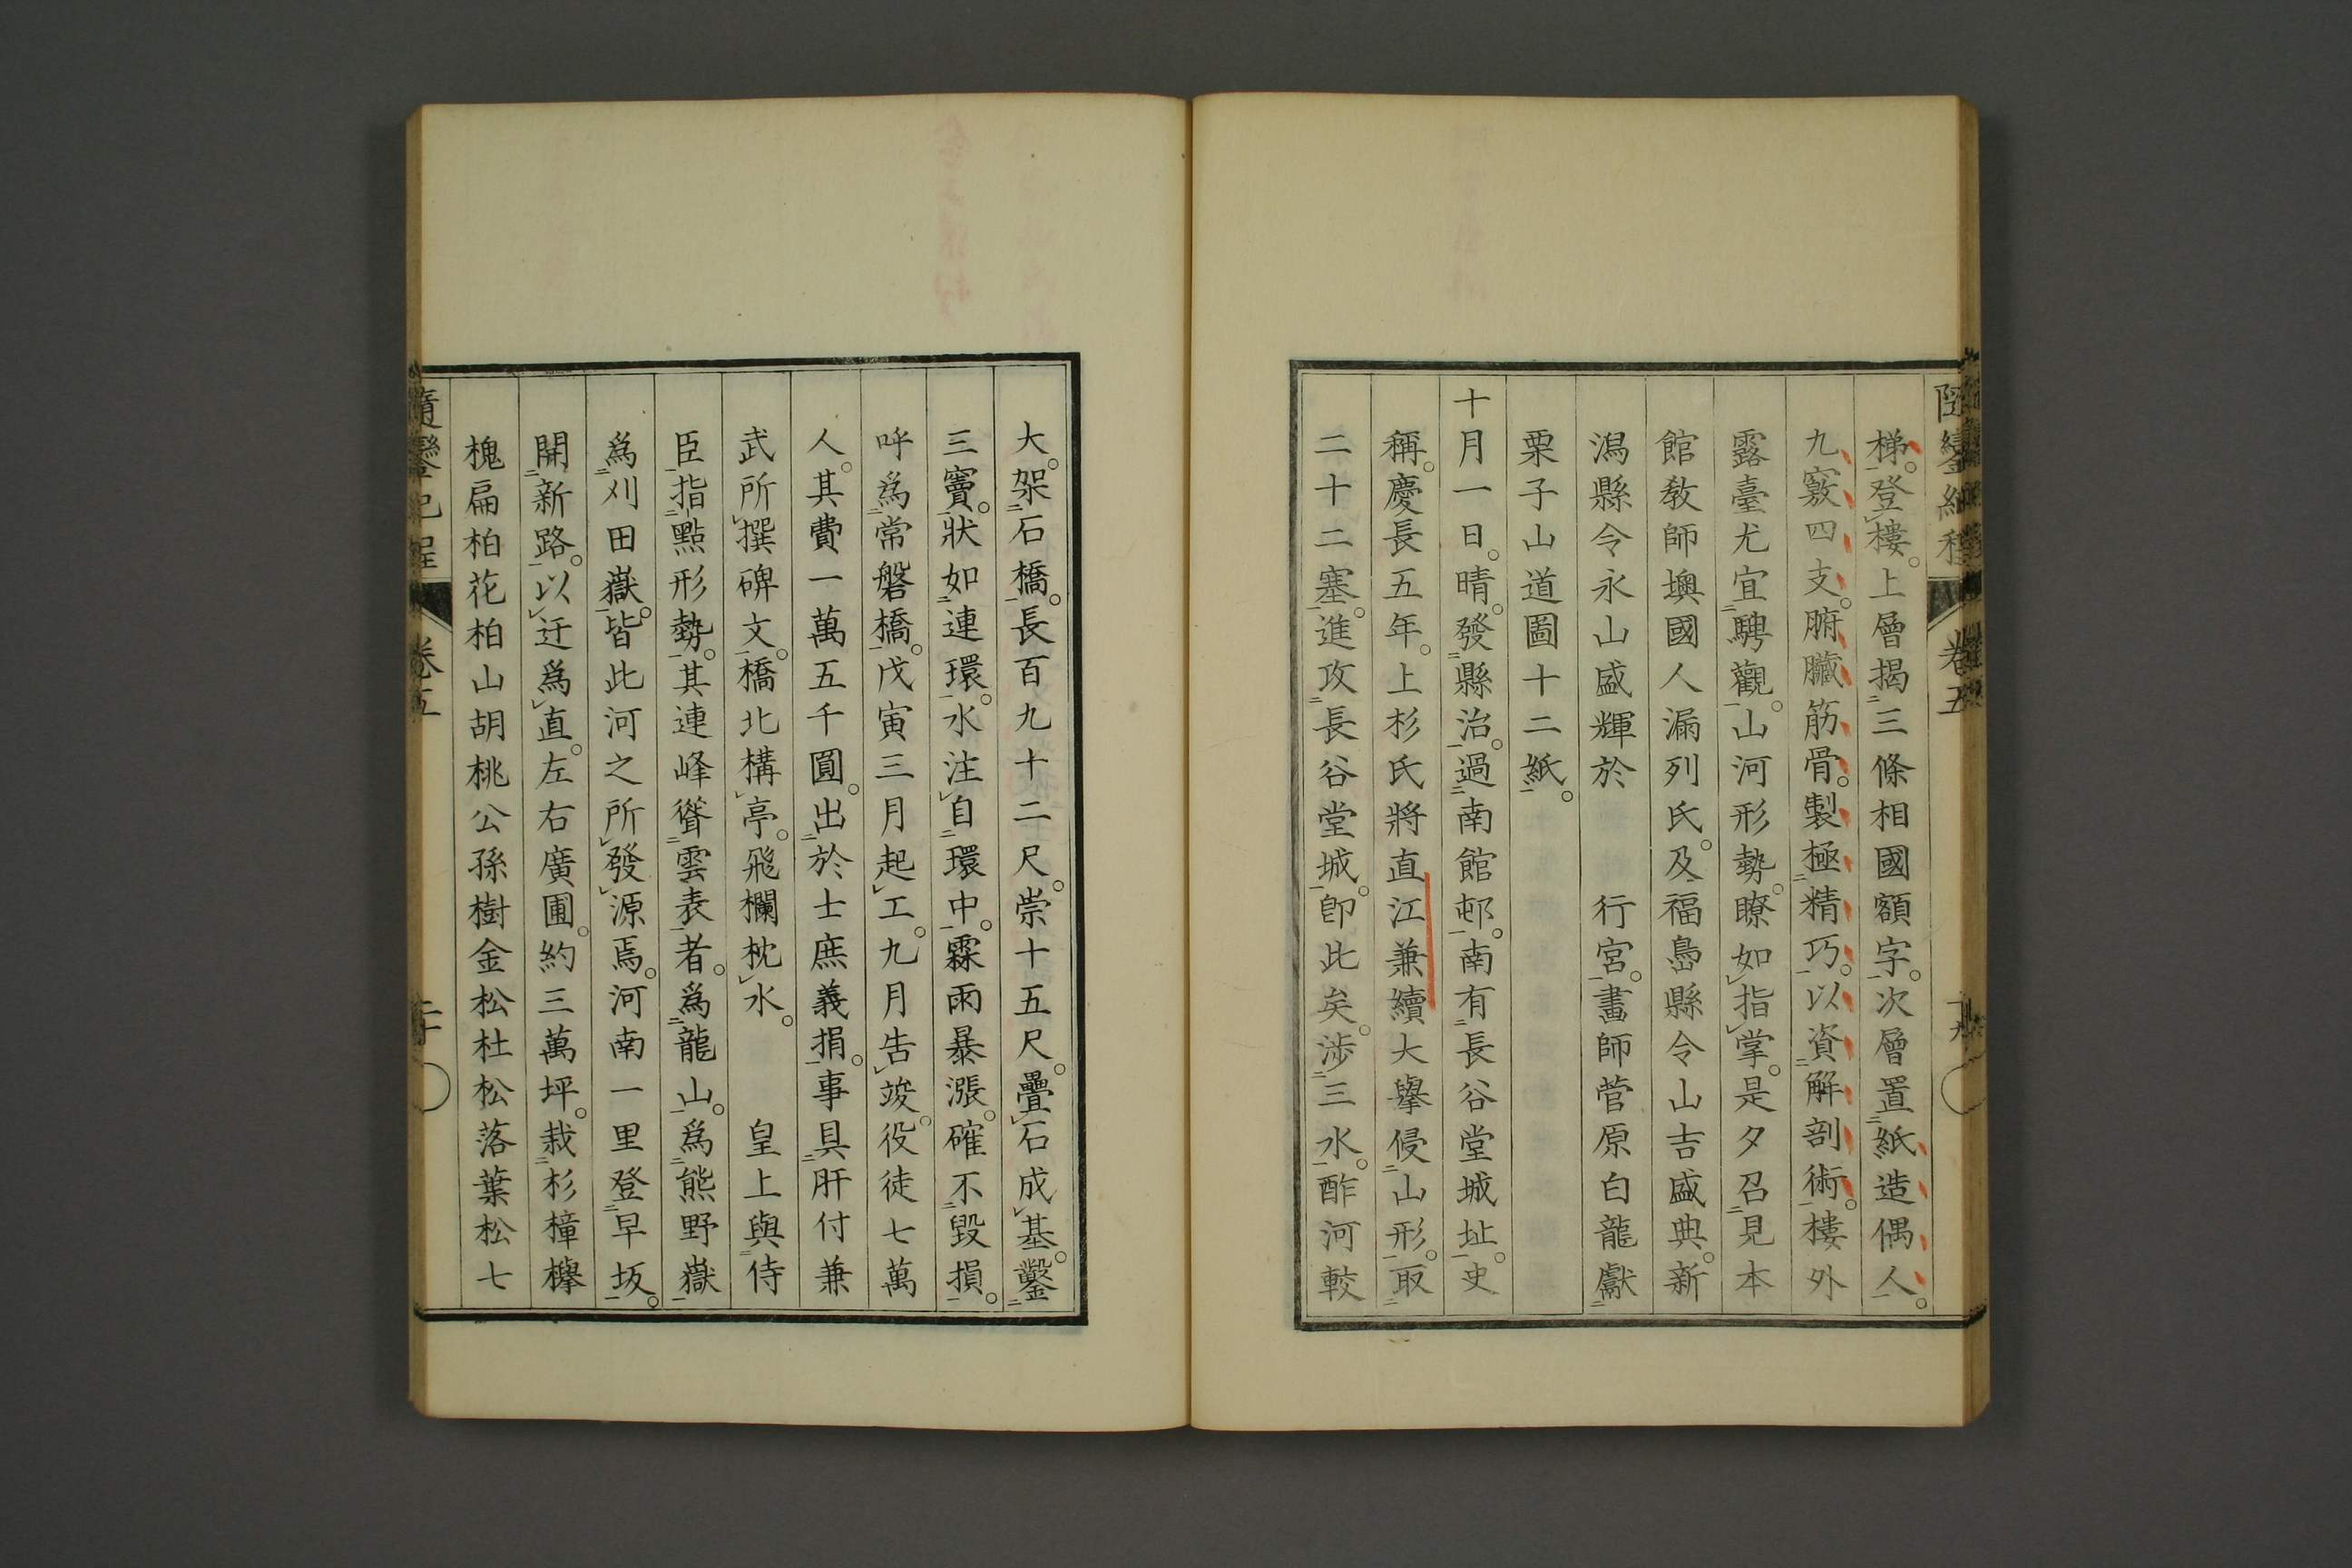 梯。登樓。上層揭三條相國額字。次層置紙造偶人。
九竅四支。腑臟筋骨。製極精巧。以資解剖術。樓外
露臺尤宜騁觀。山河形勢。瞭如指掌。是夕召見本
館教師墺國人漏列氏。及福島縣令山吉盛典。新
潟縣令永山盛輝於　行宮。畫師菅原白龍獻
栗子山道圖十二紙。
十月一日。晴。發縣治。過南館邨。南有長谷堂城址。史
稱。慶長五年。上杉氏將直江兼續大擧侵山形。取
二十二塞。進攻長谷堂城。卽此矣。涉三水。酢河較
大。架石橋。長百九十二尺。崇十五尺。疊石成基。鑿
三竇。狀如連環。水注自環中。霖雨暴漲。確不毀損。
呼爲常磐橋。戊寅三月起工。九月告竣。役徒七萬
人。其費一萬五千圓。出於士庶義捐。事具肝付兼
武所撰碑文。橋北構亭。飛欄枕水。　皇上與侍
臣指點形勢。其連峰聳雲表者。爲龍山。爲熊野嶽
爲刈田嶽。皆此河之所發源焉。河南一里登早坂。
開新路。以迂爲直。左右廣圃。約三萬坪。栽杉樟欅
槐扁柏花柏山胡桃公孫樹金松杜松落葉松七
隨鑾紀程
卷五